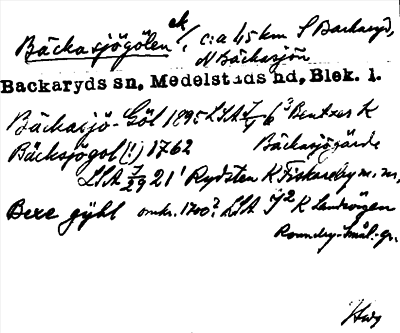 Bäckasjögölen ek/, c:a 4,5 km S Backaryd,
N Bäckasjön
Backaryds sn, Medelstads hd, Blek. l.
Bäckasjö-Göl 1895 LSA 7/6 3 Bentzes K
Bäcksjögol (!) 1762 Bäckasjögärde
LSA 7/29 21 Rydsten K Fiskareby m. m.
Bexe gyhl omkr. 1700? LSA 72 K Landvägen
Ronneby-Smål. gr.